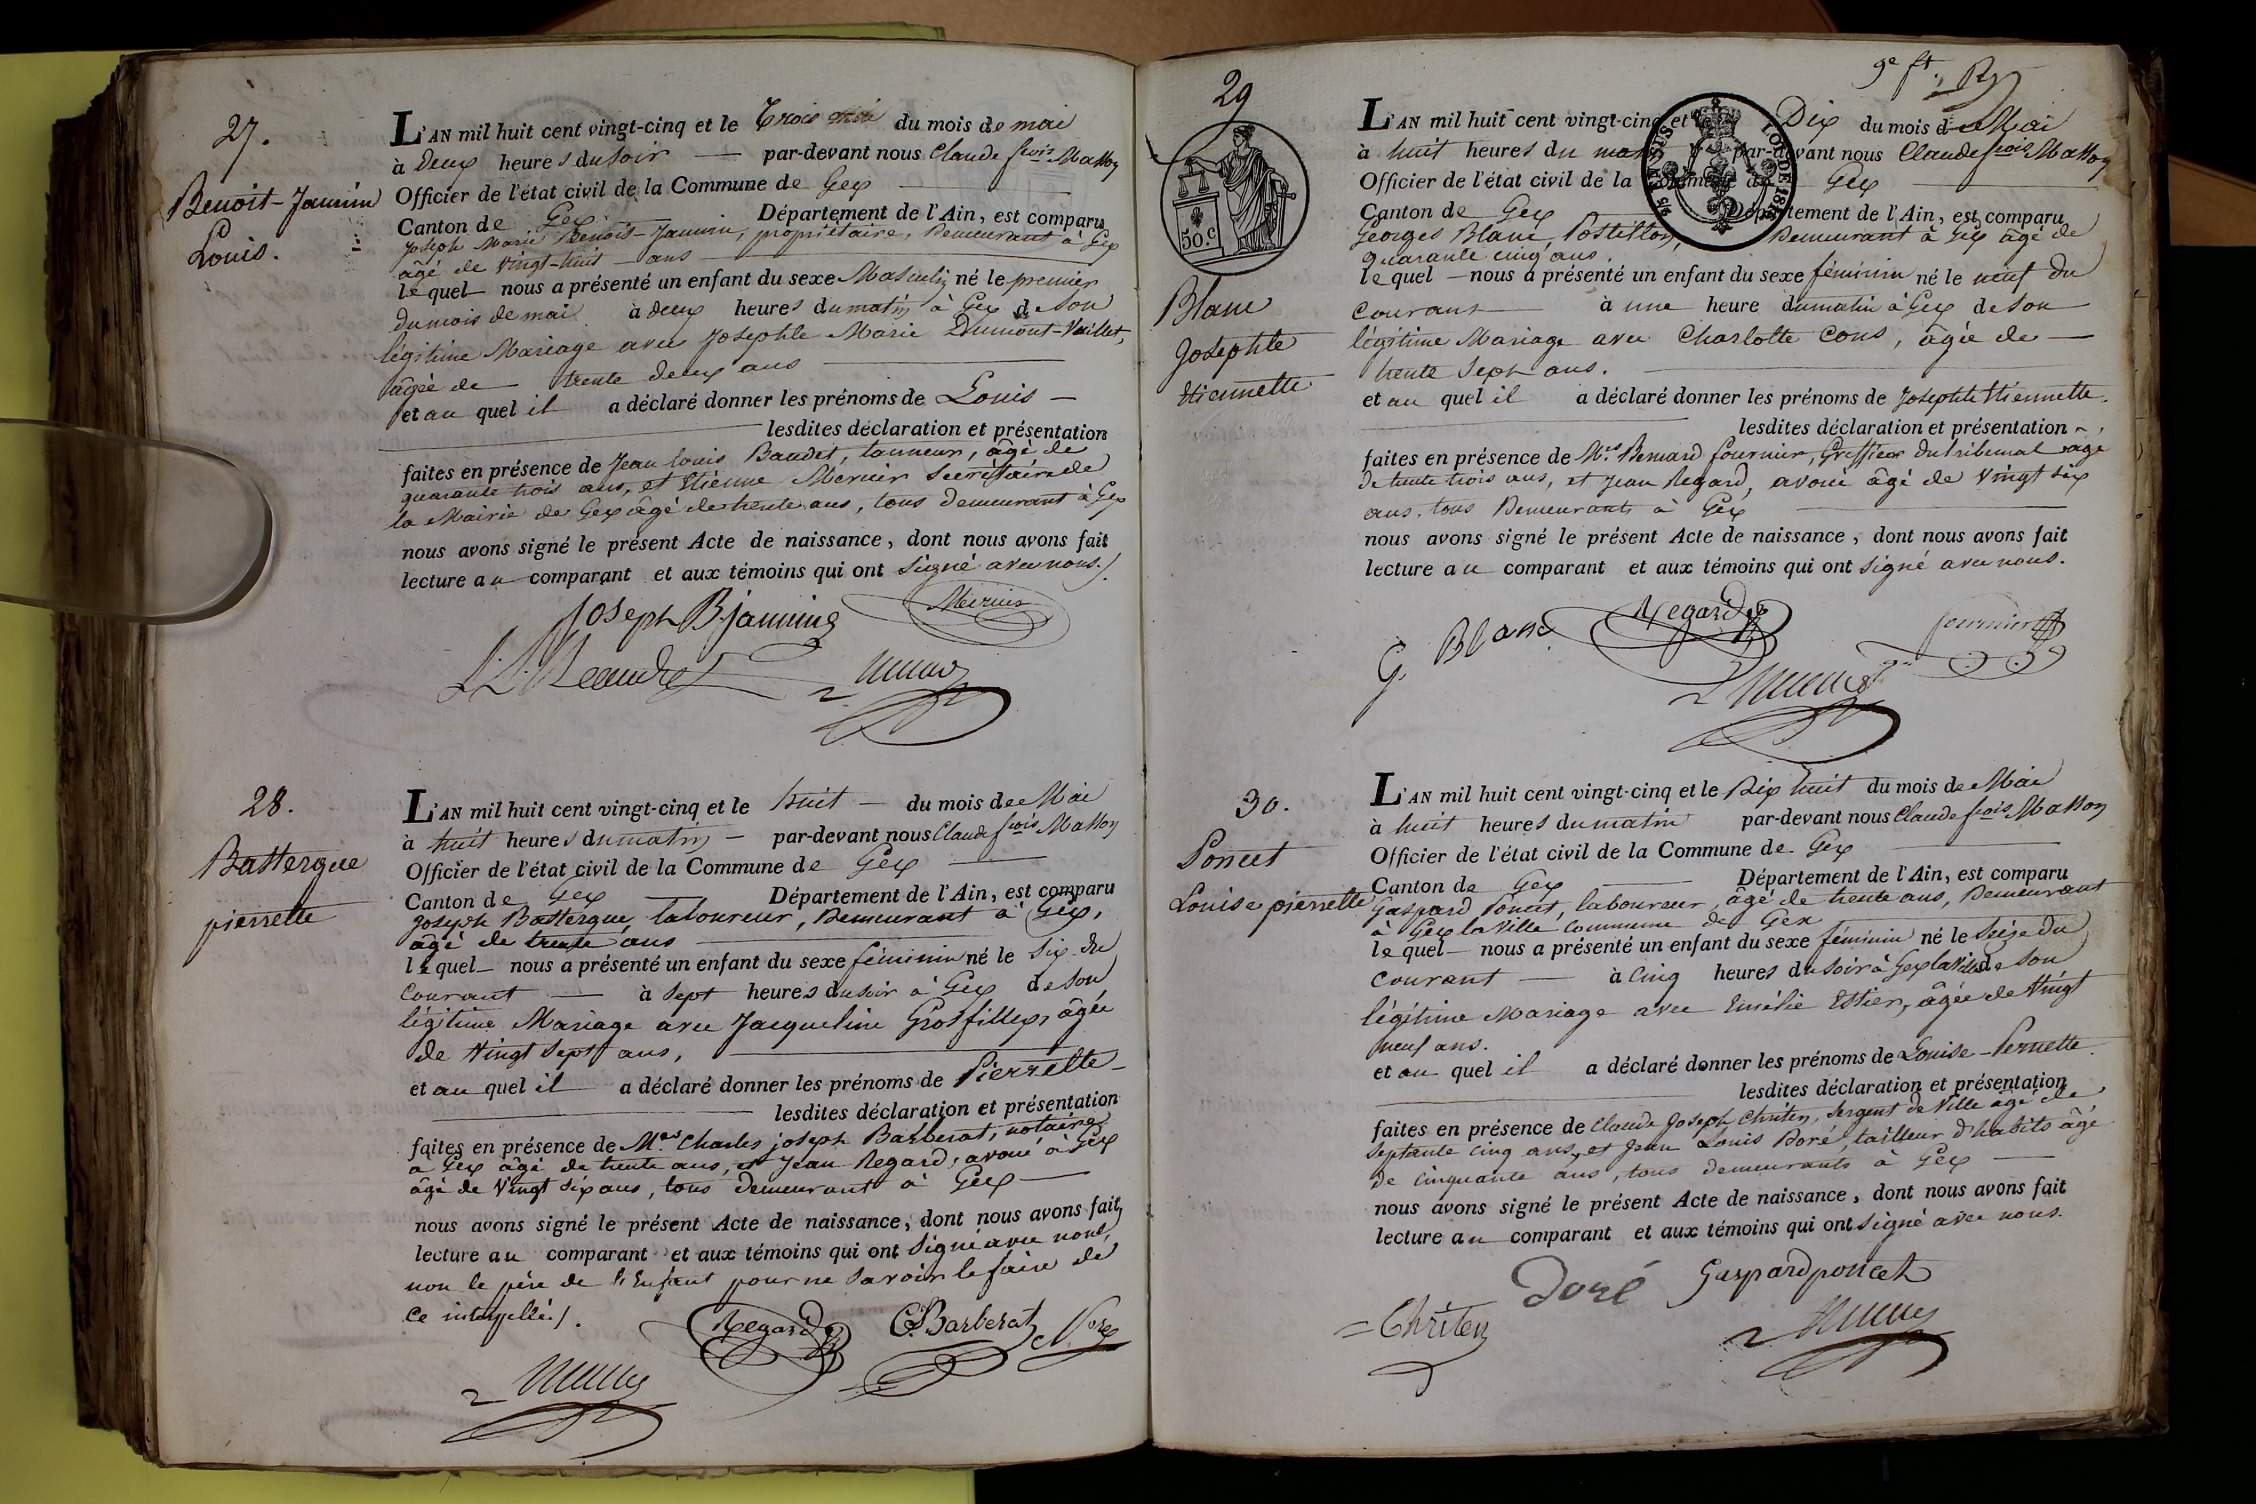 27.
Benoit-Jannin
Louis.
L'AN mil huit cent vingt-cinq et le Trois du mois de mai
à deux heures du soir — par-devant nous Claude fcois Masson
Officier de l'état civil de la Commune de Gex
Canton de Gex Département de l'Ain, est comparu
Joseph Marie Benoit-Jannin, propriétaire, Demeurant à Gex
âgé de vingt-huit ans
lequel nous a présenté un enfant du sexe Masculin né le premier
du mois de mai à deux heures du matin à Gex de son
légitime Mariage avec Josephte Marie Dumont-Vuillet,
âgée de trente deux ans
et au quel il a déclaré donner les prénoms de Louis —
lesdites déclaration et présentation
faites en présence de Jean Louis Baudet, tanneur, âgé de
quarante trois ans, et Etienne Mercier Secrétaire de
la Mairie de Gex âgé de trente ans, tous demeurant à Gex
nous avons signé le présent Acte de naissance, dont nous avons fait
lecture au comparant et aux témoins qui ont signé avec nous./.
Joseph B. jannin
Mercier
28.
Battergue
pierrette
L'AN mil huit cent vingt-cinq et le huit — du mois de Mai
à huit heures du matin — par-devant nous Claude fcois Masson
Officier de l'état civil de la Commune de Gex
Canton de Gex Département de l'Ain, est comparu
Joseph Battergue, laboureur, Demeurant à Gex,
âgé de trente ans
lequel nous a présenté un enfant du sexe féminin né le six du
courant — à sept heures du soir à Gex de son
légitime Mariage avec Jacqueline Grosfillex, âgée
de vingt sept ans,
et au quel il a déclaré donner les prénoms de Pierrette
lesdites déclaration et présentation
faites en présence de Mes Charles joseph Barberat, notaire
à Gex âgé de trente ans, et Jean Regard, avoué à Gex
âgé de vingt six ans, tous demeurant à Gex
nous avons signé le présent Acte de naissance, dont nous avons fait
lecture au comparant et aux témoins qui ont signé avec nous,
non le père de l'Enfant pour ne savoir le faire de
ce interpellé./.
Regard
Barberat
29
50.c
Blanc
Josephte
Etiennette
L'AN mil huit cent vingt-cinq et le Dix du mois de Mai
à huit heures du matin par-devant nous Claude fcois Masson
Officier de l'état civil de la Commune de Gex
Canton de Gex Département de l'Ain, est comparu
Georges Blanc, Postillon, Demeurant à Gex âgé de
quarante cinq ans.
lequel — nous a présenté un enfant du sexe féminin né le neuf du
courant à une heure du matin à Gex de son
légitime Mariage avec Charlotte Cons, âgée de —
trente sept ans.
et au quel il a déclaré donner les prénoms de Josephte Etiennette.
lesdites déclaration et présentation
faites en présence de Mes Bernard fournier, Greffier du tribunal âgé
de trente trois ans, et Jean Regard, avoué âgé de vingt six
ans, tous Demeurants à Gex
nous avons signé le présent Acte de naissance, dont nous avons fait
lecture au comparant et aux témoins qui ont signé avec nous.
G. Blanc
Regard
fournier
30.
Poncet
Louise pierrette
L'AN mil huit cent vingt-cinq et le Dix huit du mois de Mai
à huit heures du matin par-devant nous Claude fcois Masson
Officier de l'état civil de la Commune de Gex
Canton de Gex Département de l'Ain, est comparu
Gaspard Poncet, laboureur, âgé de trente ans, Demeurant
à Gex la Ville commune de Gex
lequel — nous a présenté un enfant du sexe féminin né le seize du
courant — à cinq heures du soir à Gex la Ville de son
légitime Mariage avec Emélie Estier, âgée de vingt
neuf ans.
et au quel il a déclaré donner les prénoms de Louise-Pernette.
lesdites déclaration et présentation
faites en présence de Claude Joseph Chriten, sergent de Ville âgé de
septante cinq ans, et Jean Louis Doré, tailleur d'habits âgé
de cinquante ans, tous demeurants à Gex
nous avons signé le présent Acte de naissance, dont nous avons fait
lecture au comparant et aux témoins qui ont signé avec nous.
Doré
Gaspard poncet
Chriten